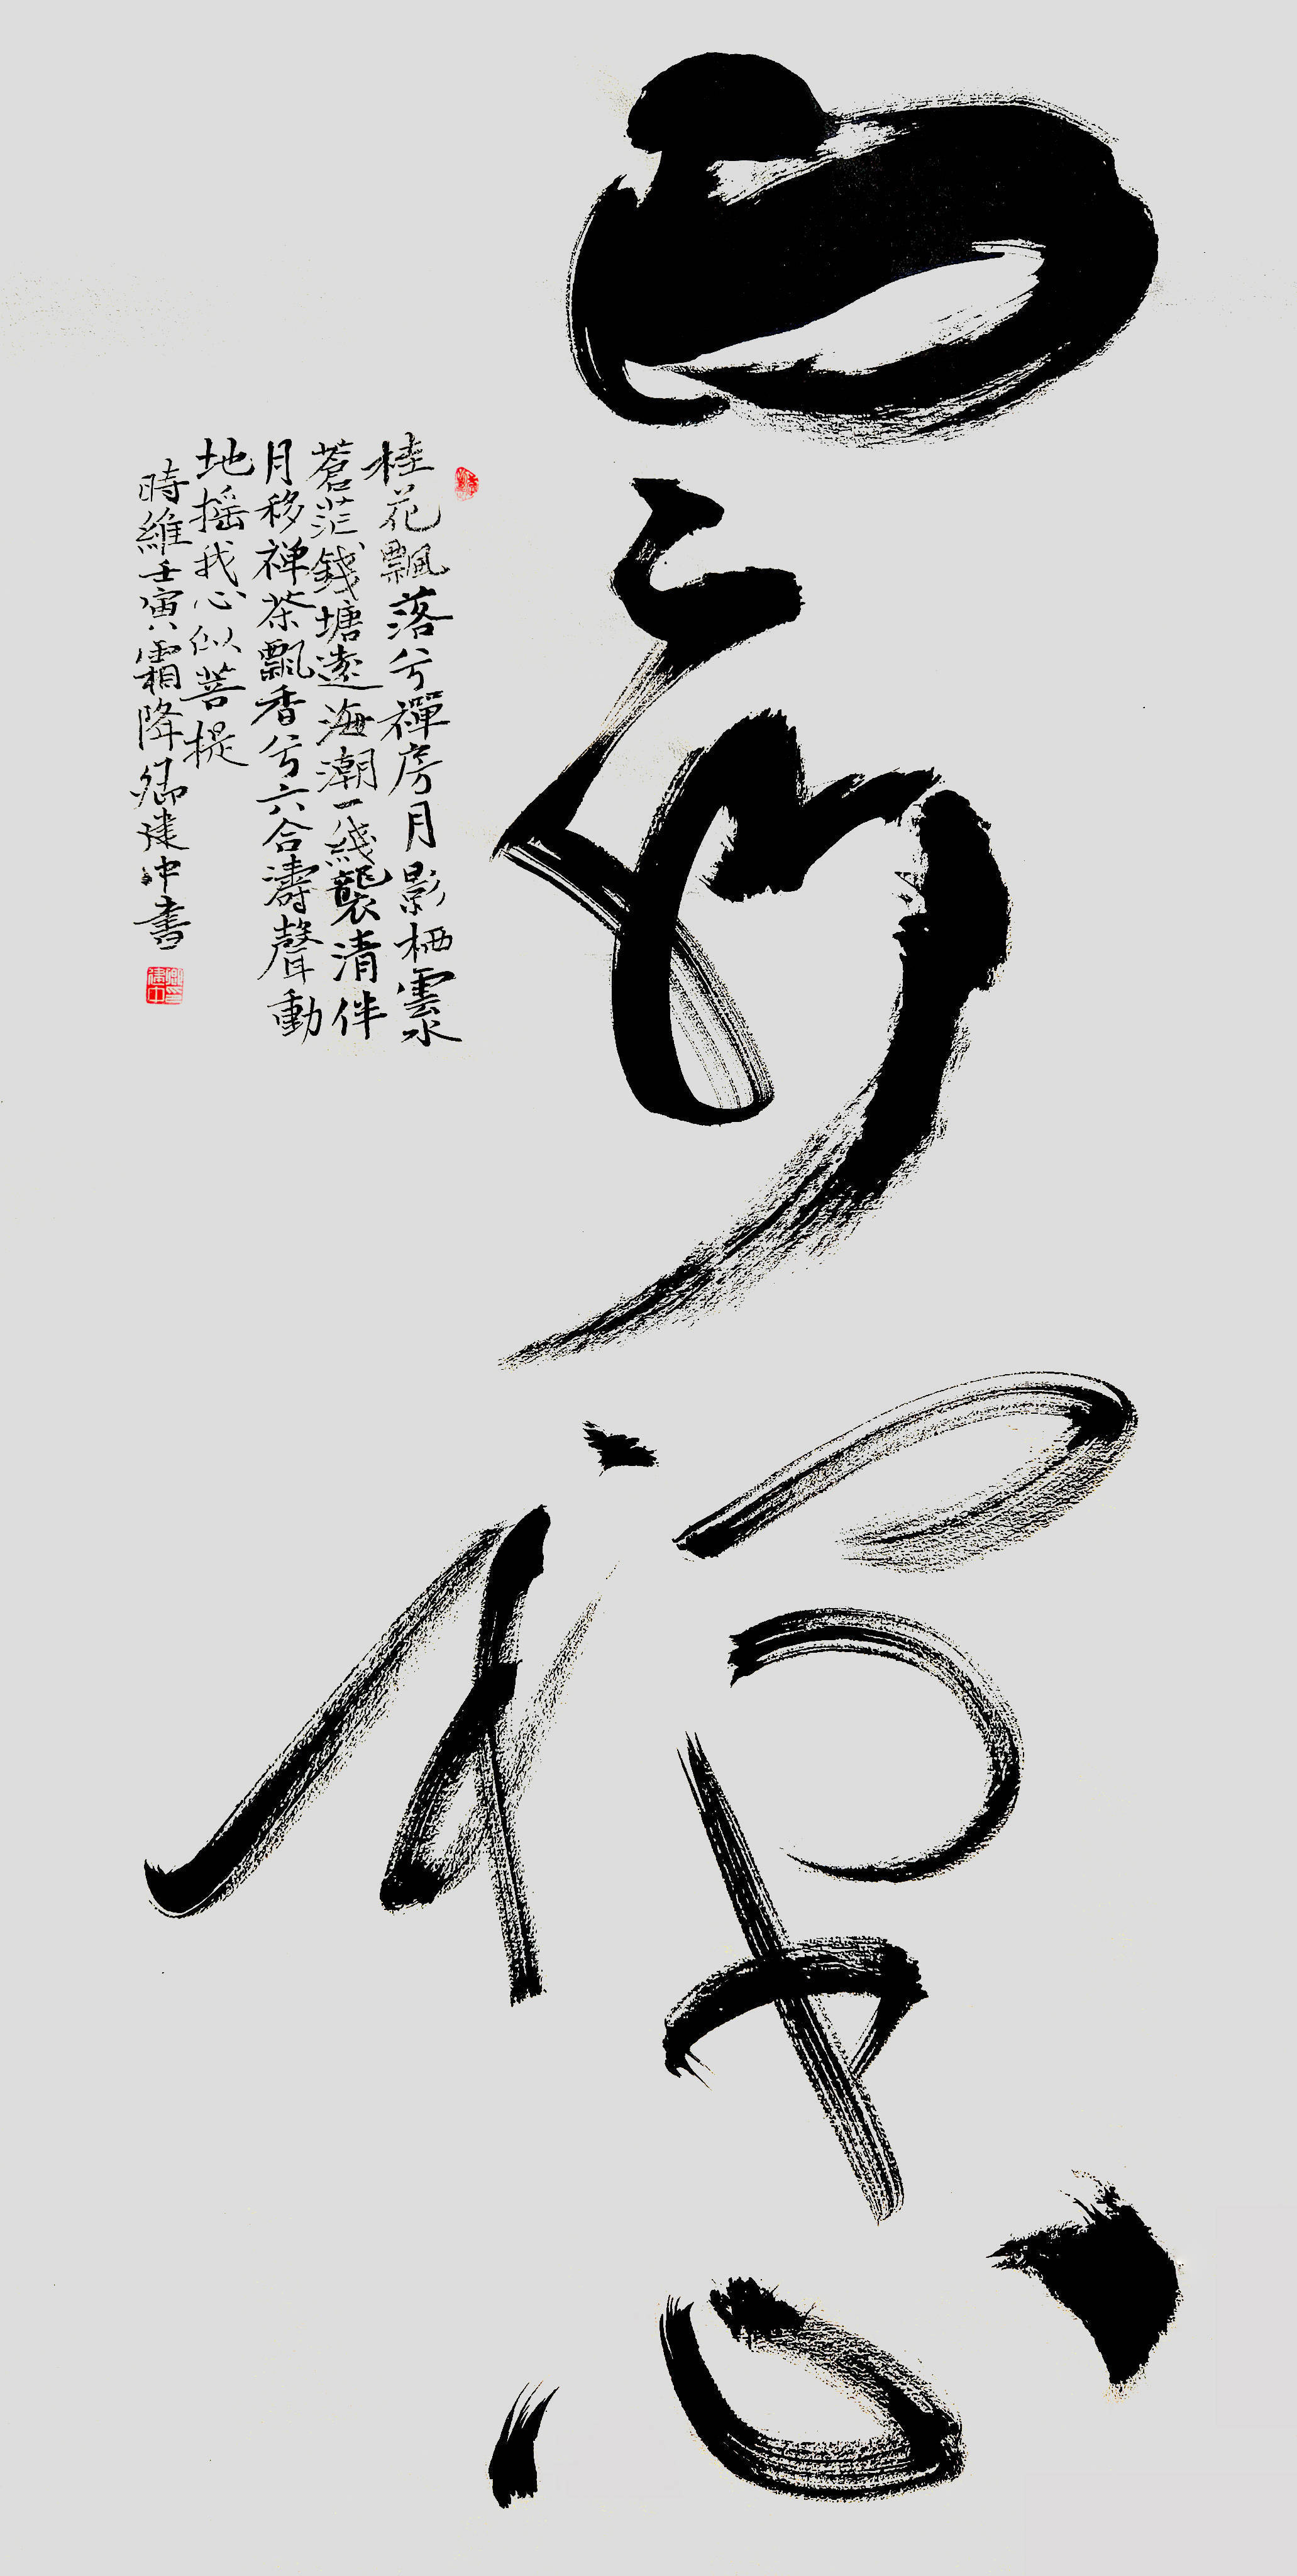 雲水禅心
桂花飄落兮禪房月影栖雲水
蒼茫錢塘遠海潮一綫襲清伴
月移禅茶飄香兮六合濤聲動
地摇我心似菩提
時維壬寅霜降卿建中書